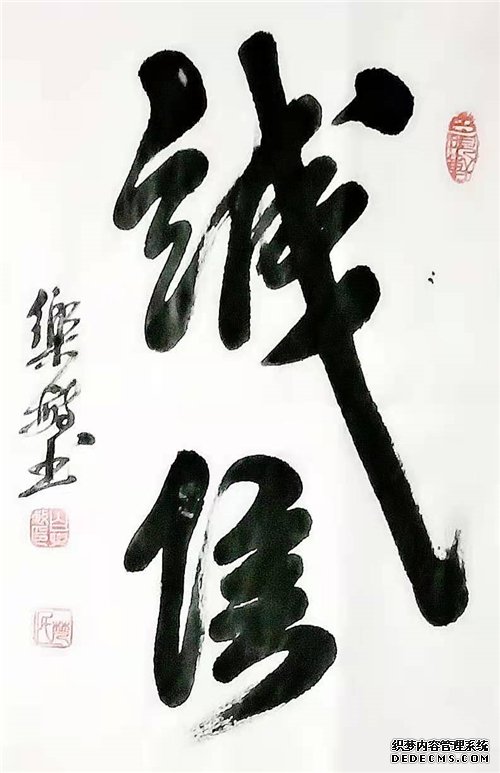 诚信
樂
书
织梦内容管理系统
DEDECMS.COM